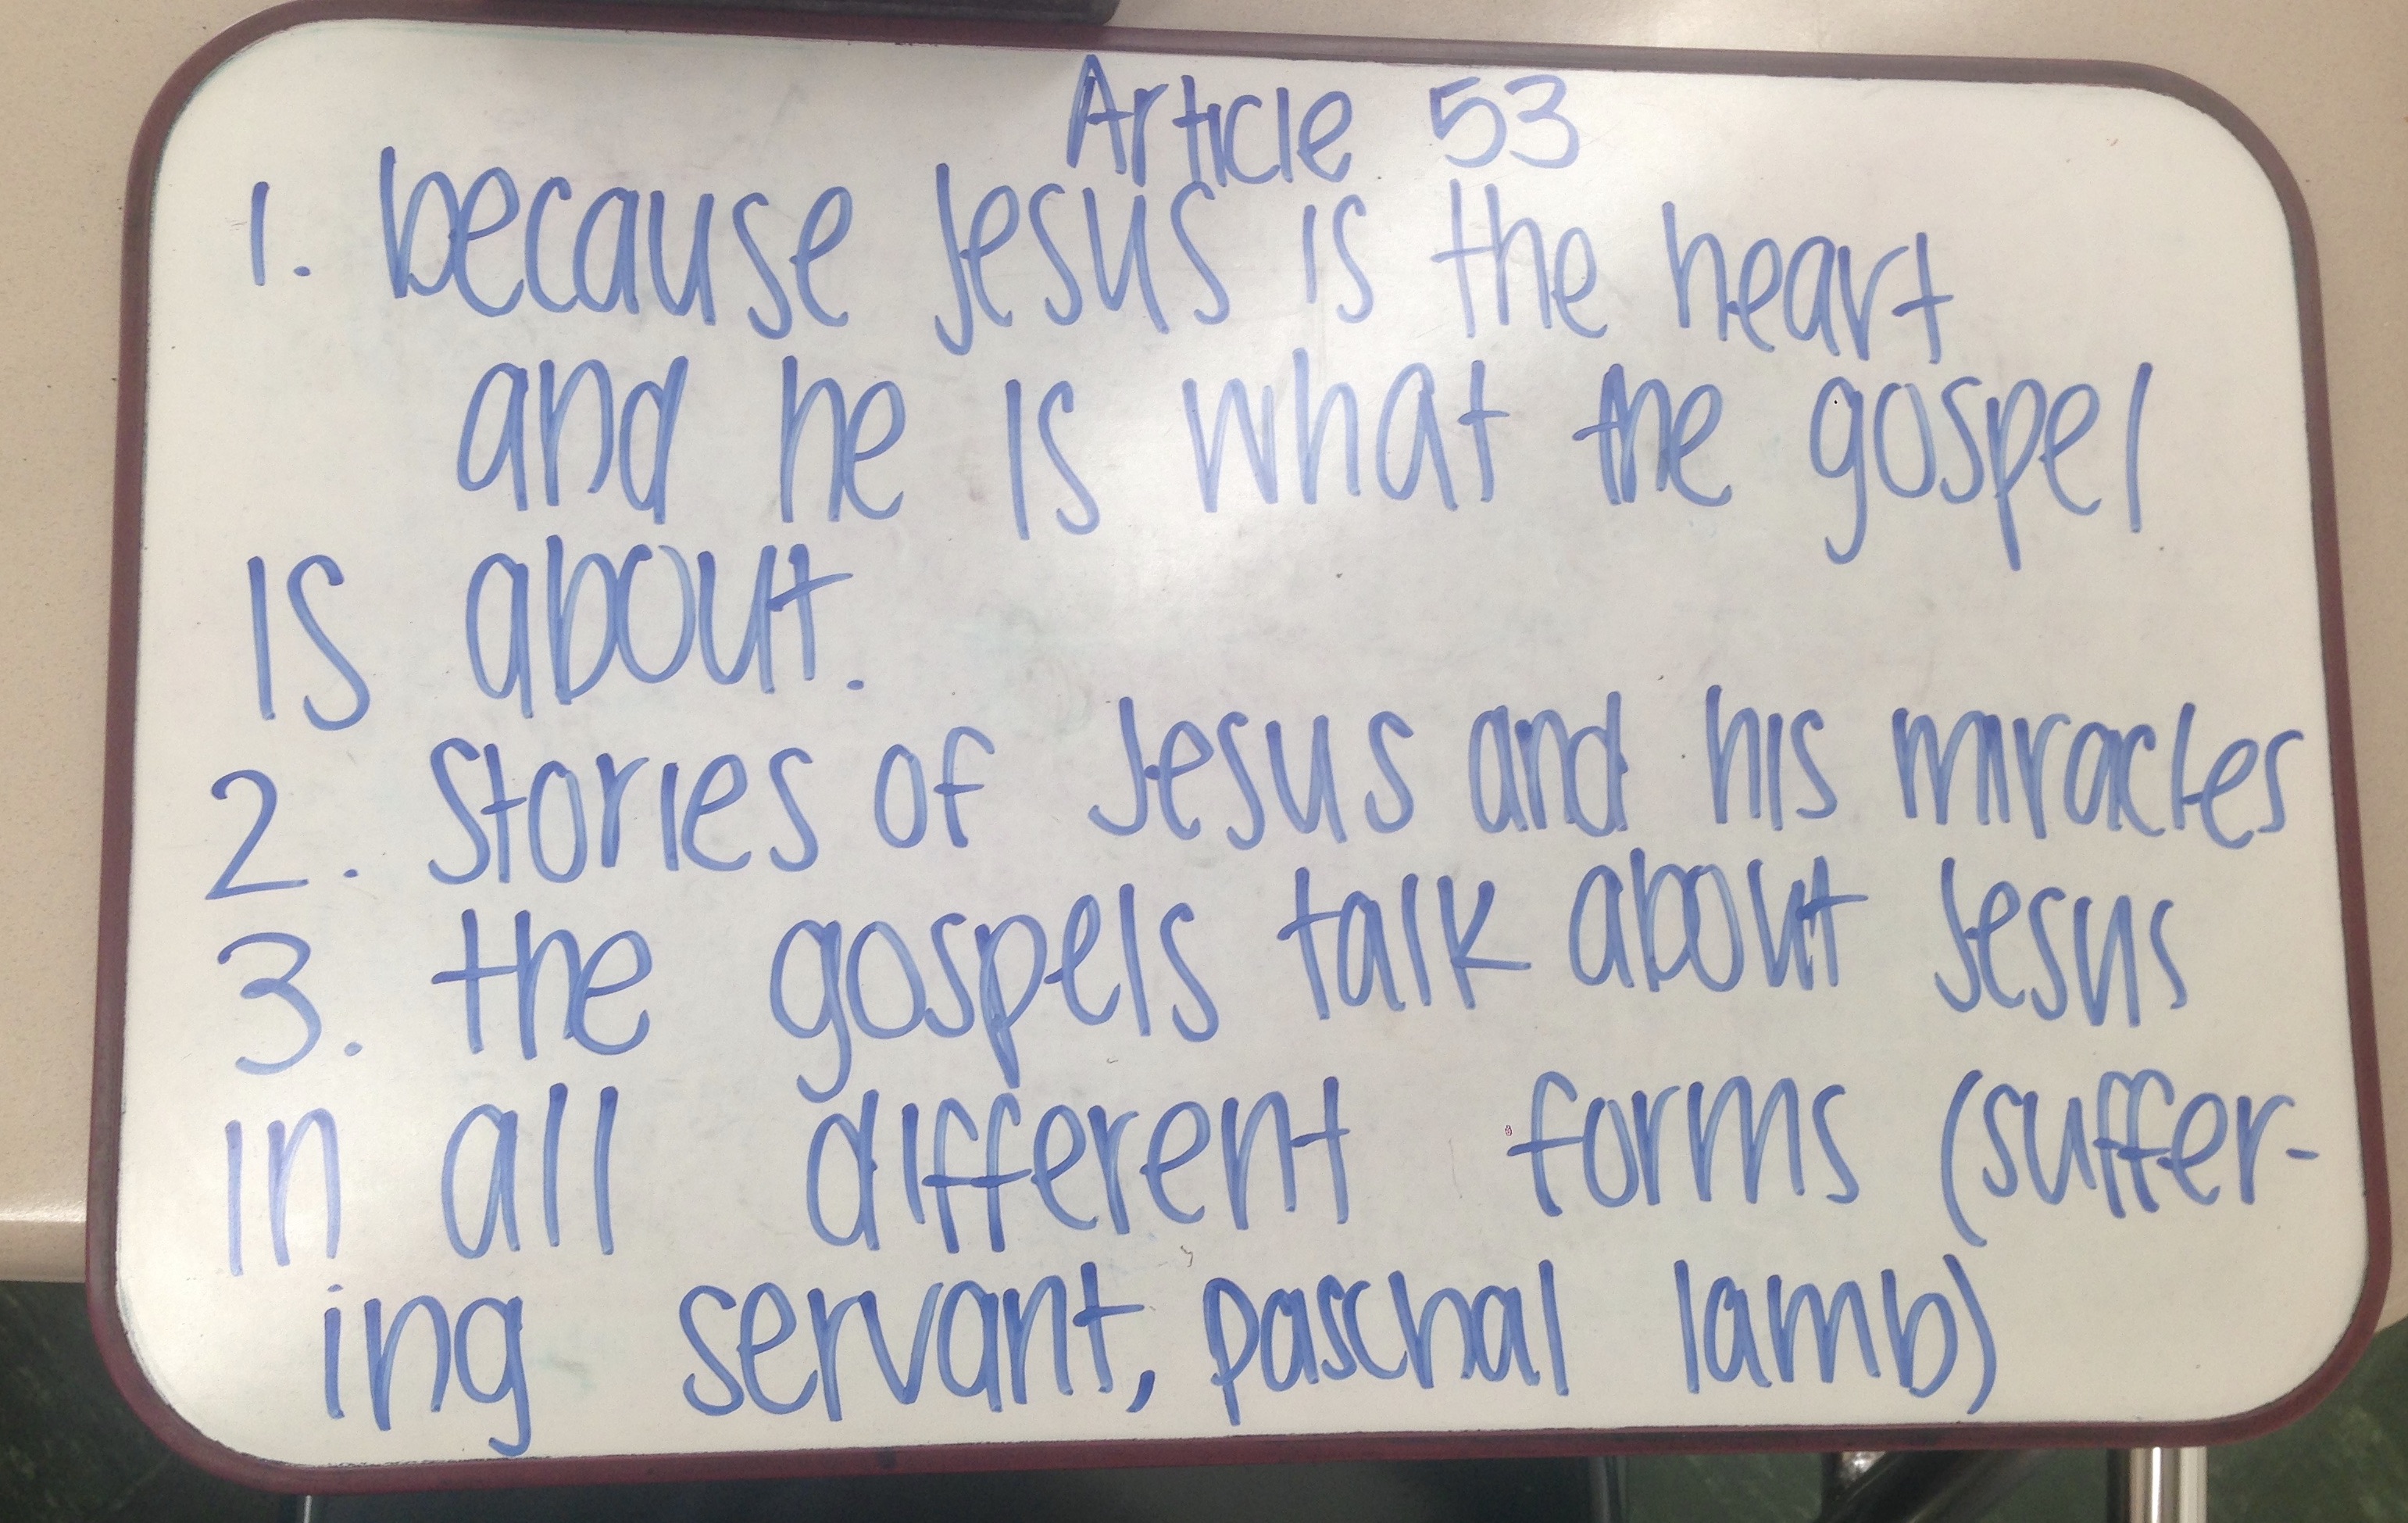 Article 53
1. because Jesus is the heart
and he is what the gospel
is about.
2. Stories of Jesus and his miracles
3. the gospels talk about Jesus
in all different forms (suffer-
ing servant, paschal lamb)